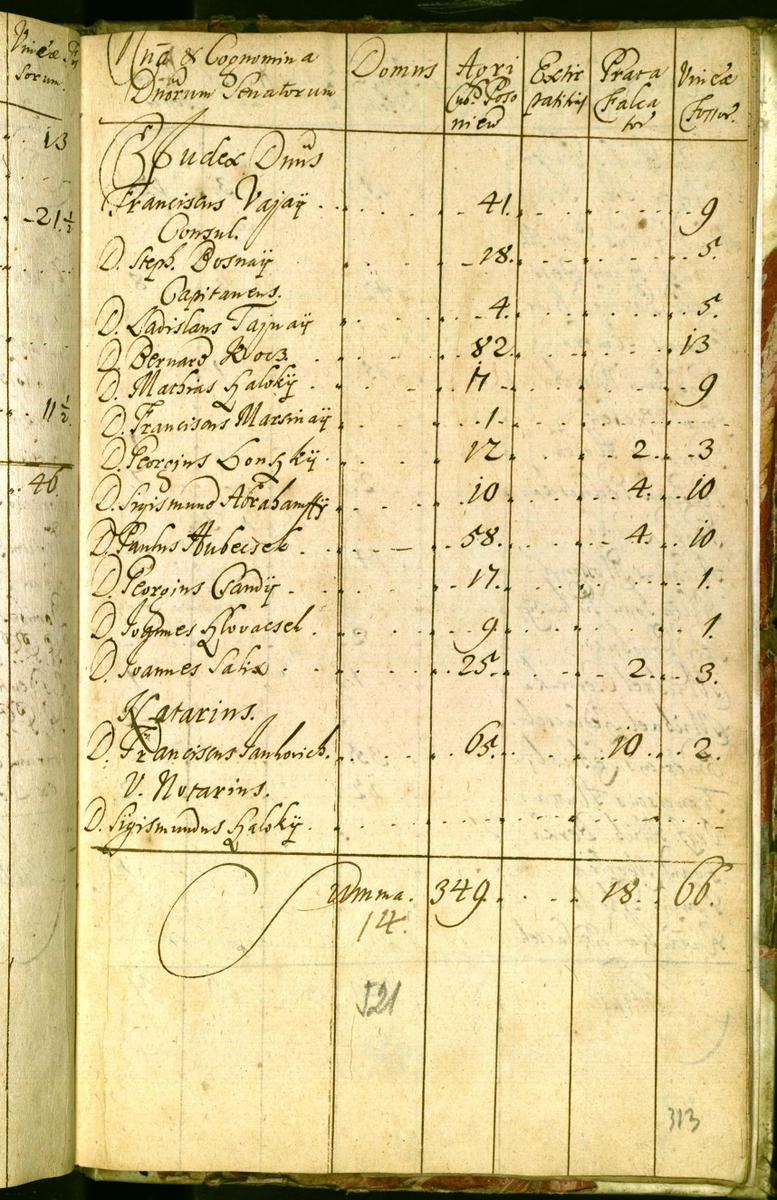 Vineæ
sorum.
13
21½
11½
46.
Nnā & Cognomina Domus Agri Extir Prata Vineæ
Dnorum Senatorum Cub. Poso patitiis Falca Fossor.
niens tor
Judex Dnūs
Franciscus Vajaÿ 41. 9
Consul.
D. Steph. Bosnaÿ 28. 5.
Capitaneus.
D. Ladislaus Tajnaÿ 4. 5.
D. Bernard Kocz. 82. 13
D. Mathias Halokÿ 17 9
D. Franciscus Marsinaÿ 1.
D. Georgius Lonszkÿ 12 2. 3
D. Sigismund Abrahamffÿ 10 4. 10
D. Paulus Hubecsek 58. 4. 10.
D. Georgius Csandÿ 17. 1.
D. Joannes Hlovacsek 9. 1.
D. Joannes Salix 25. 2. 3.
Notarius.
D. Franciscus Jankovich. 65. 10. 2.
V. Notarius.
D. Sigismundus Halokÿ
Summa. 349. 18. 66.
14.
521
313